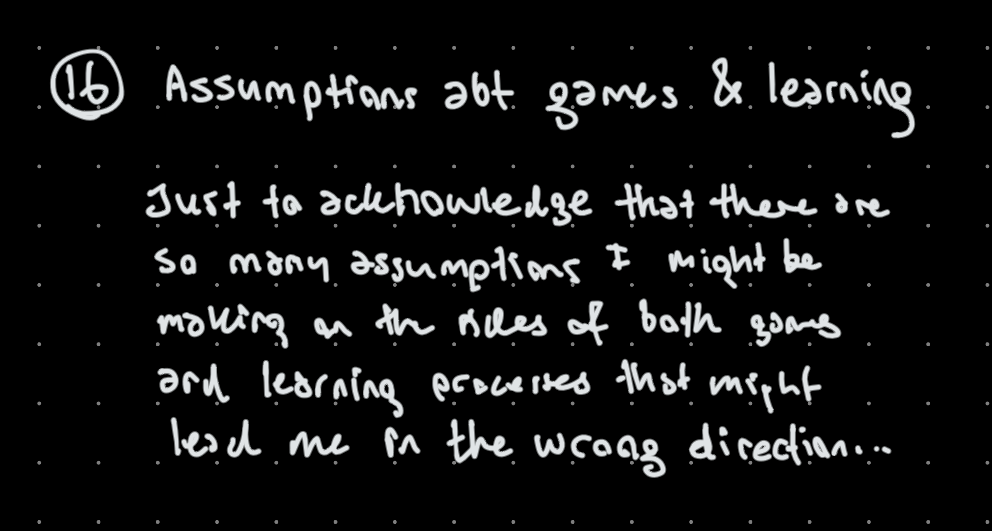 16 Assumptions abt games & learning
Just to acknowledge that there are
so many assumptions I might be
making on the rules of both games
and learning processes that might
lead me in the wrong direction...